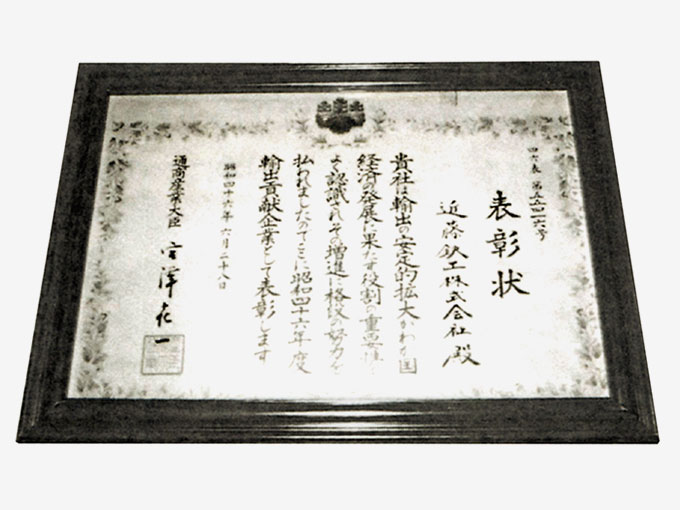 四六表 第五四一六号
表彰状
近藤鉄工株式会社 殿
貴社は輸出の安定的拡大がわが国
経済の発展に果たす役割の重要性を
よく認識されその増進に格段の努力を
払われましたのでここに昭和四十六年度
輸出貢献企業として表彰します
昭和四十六年六月二十八日
通商産業大臣 宮澤喜一